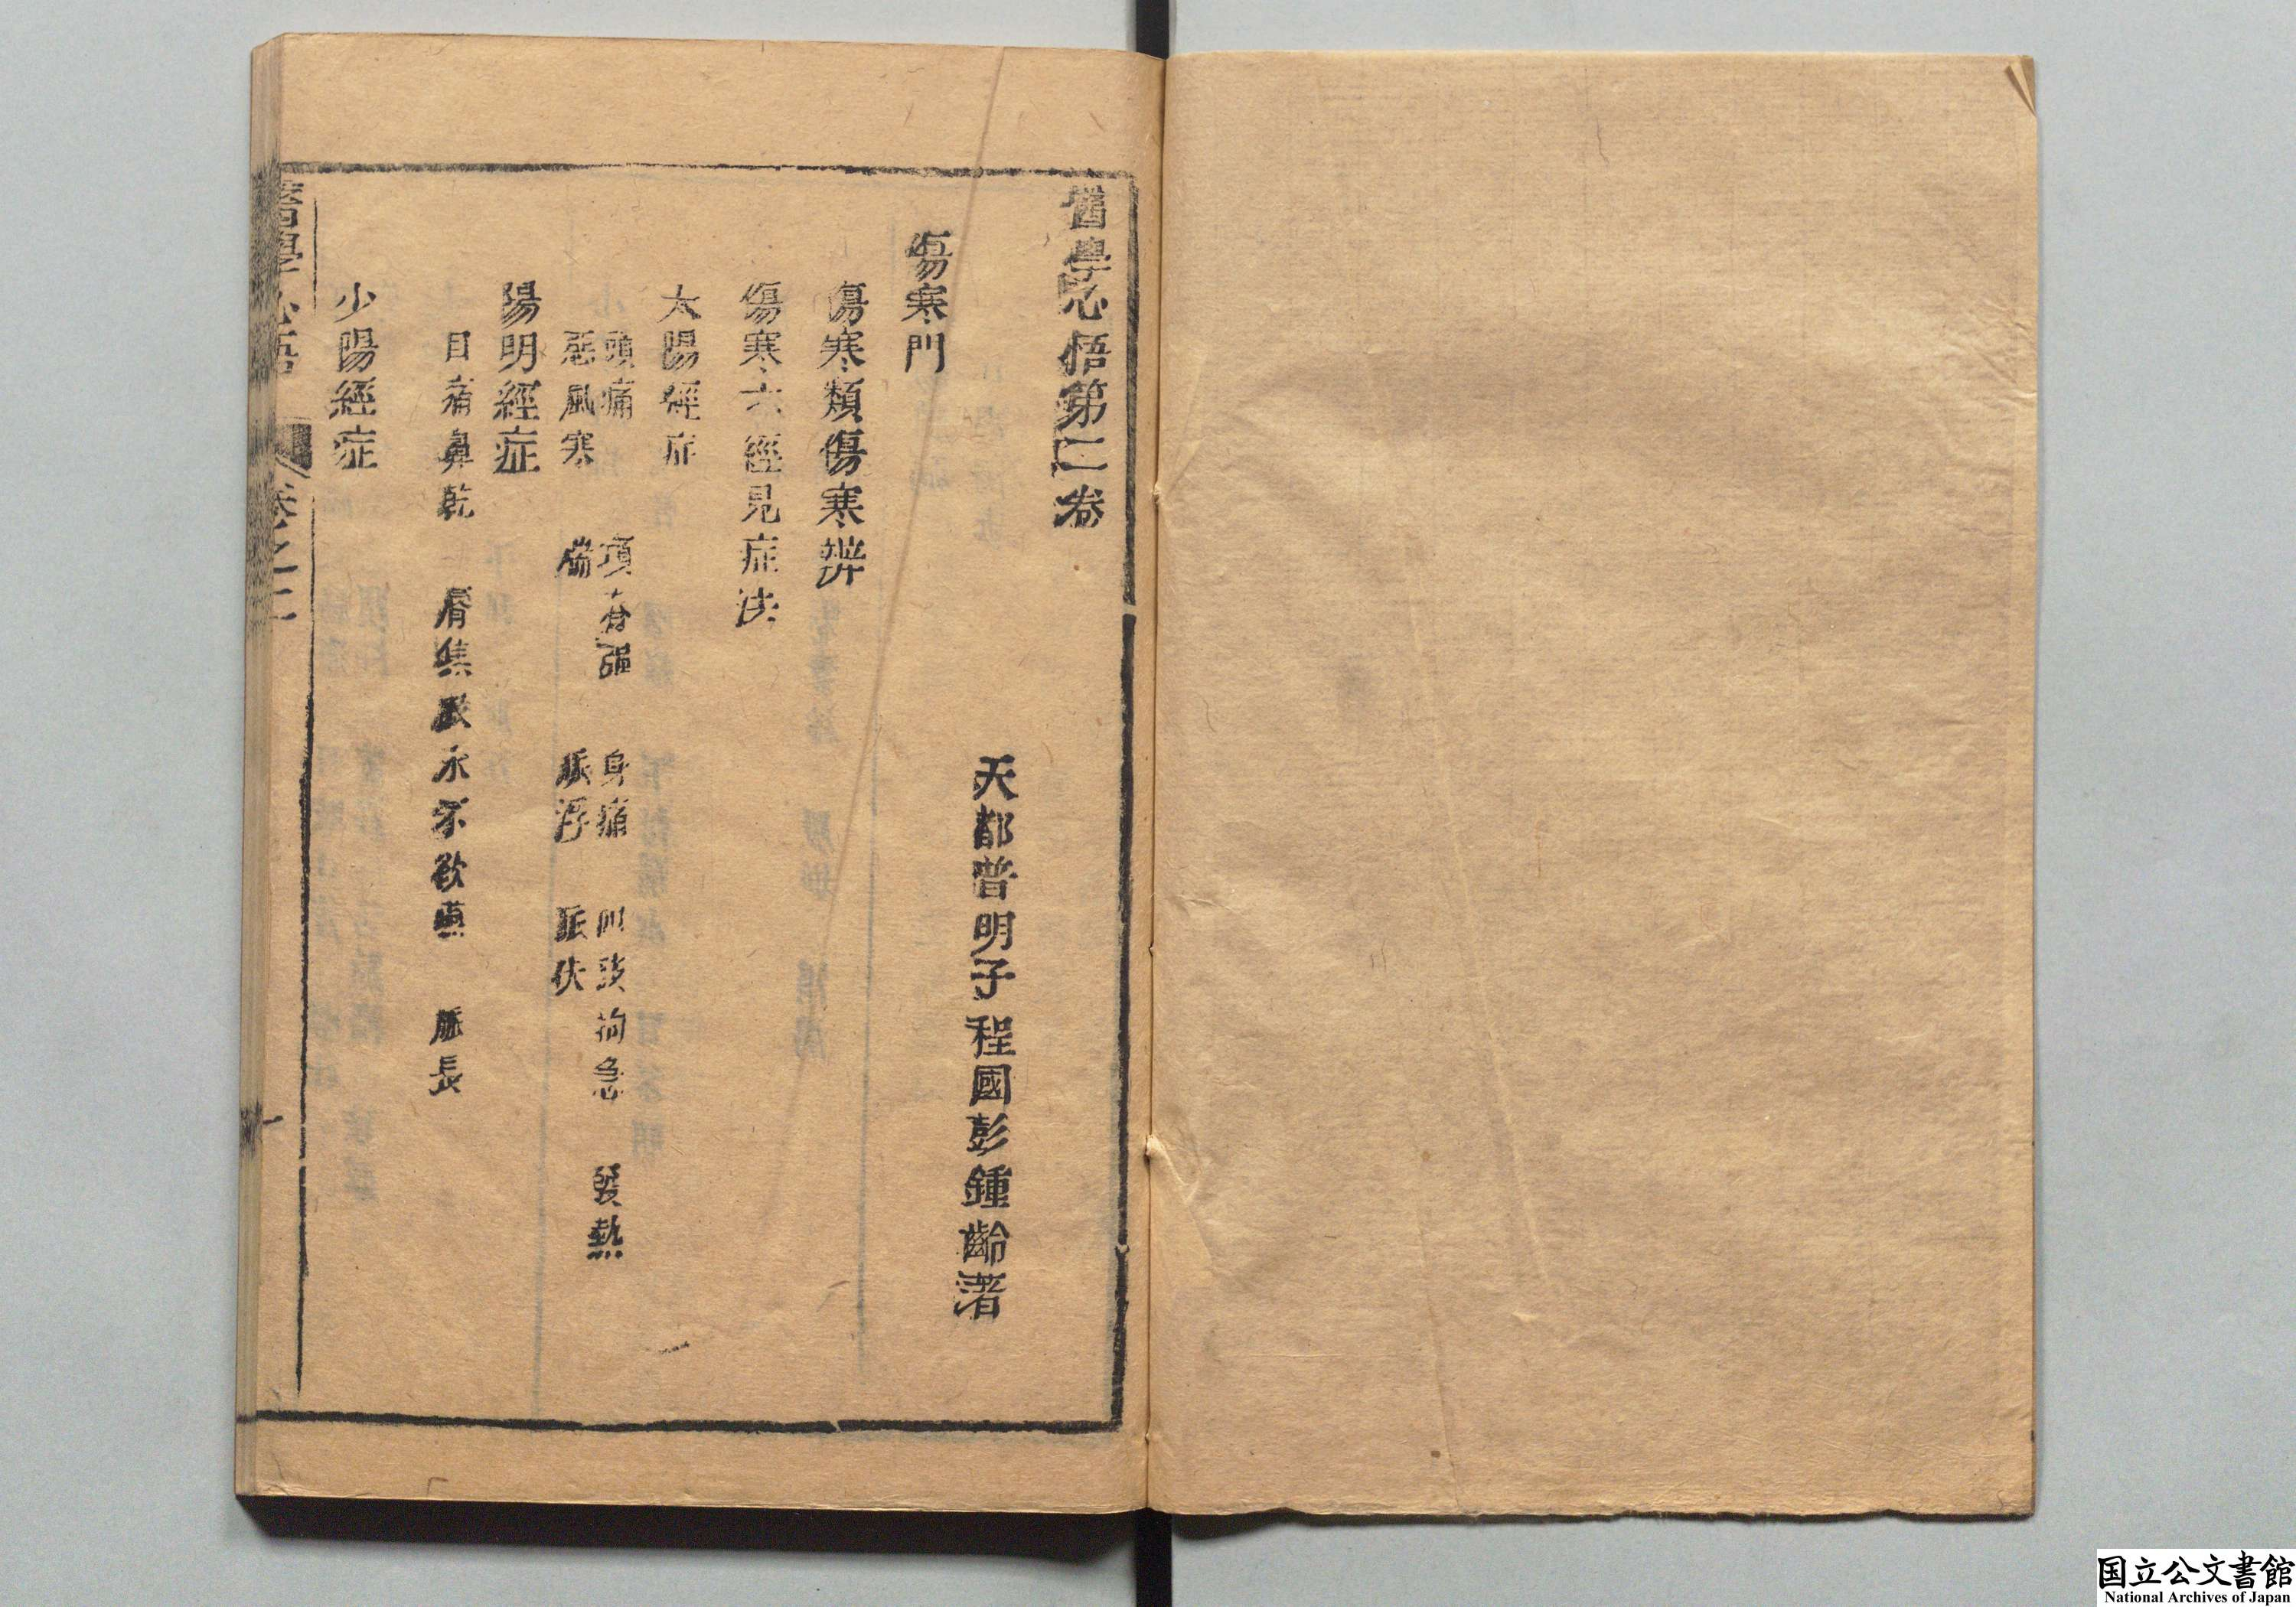 醫學心悟第二卷
天都普明子程國彭鍾齡著
傷寒門
傷寒類傷寒辨
傷寒六經見症法
太陽經症
頭痛 項脊強 身痛 四肢拘急 發熱
惡風寒 喘 脈浮 脈伏
陽明經症
目痛鼻乾 唇焦漱水不欲嚥 脈長
少陽經症
醫學心悟 卷之二 一
国立公文書館
National Archives of Japan